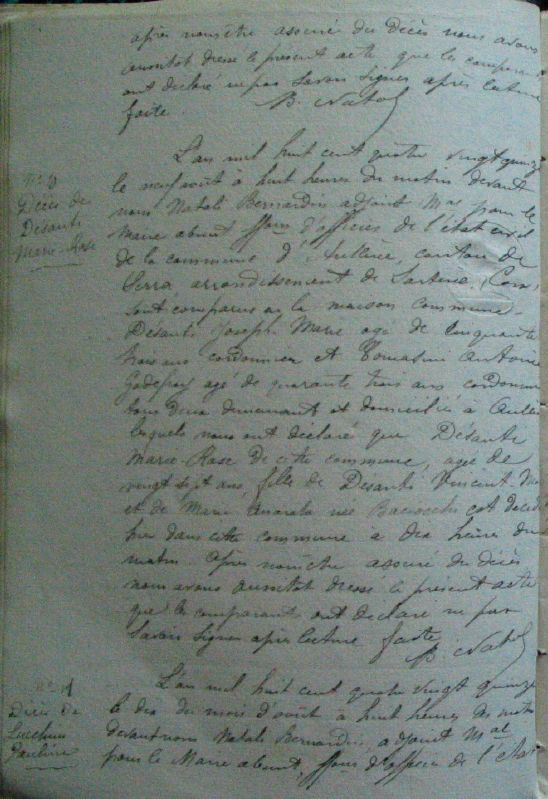 après nous être assuré du décès nous avons
aussitot dressé le présent acte que les comparants
ont déclaré ne pas savoir signer après lecture
faite. B. Natali
L'an mil huit cent quatre vingt quinze
le neuf août à huit heures du matin devant
nous Natali Bernardin adjoint Mal pour le
Maire absent ffons d'officier de l'état civil
de la commune d'Aullène, canton de
Serra arrondissement de Sartene, (Corse)
sont comparus en la maison commune
Désanti Joseph Marie agé de cinquante
trois ans cordonnier et Tomasini Antoine
Godefroy age de quarante trois ans cordonnier
tous deux demeurant et domiciliés à Aullène
lesquels nous ont déclaré que Désanti
Marie Rose de cette commune, agée de
vingt sept ans, fille de Desanti Vincent
et de Marie née Baciocchi est décédée
hier dans cette commune à dix heures du
matin. Après nous être assuré du décès
nous avons aussitot dressé le présent acte
que les comparants ont déclaré ne pas
savoir signer après lecture faite.
B. Natali
L'an mil huit cent quatre vingt quinze
le dix du mois d'août à huit heures du matin
devant nous Natali Bernardin, adjoint Mal
pour le Maire absent, ffons d'officier de l'état
Décès de
Désanti
Marie-Rose
Décès de
Lucchini
Pauline